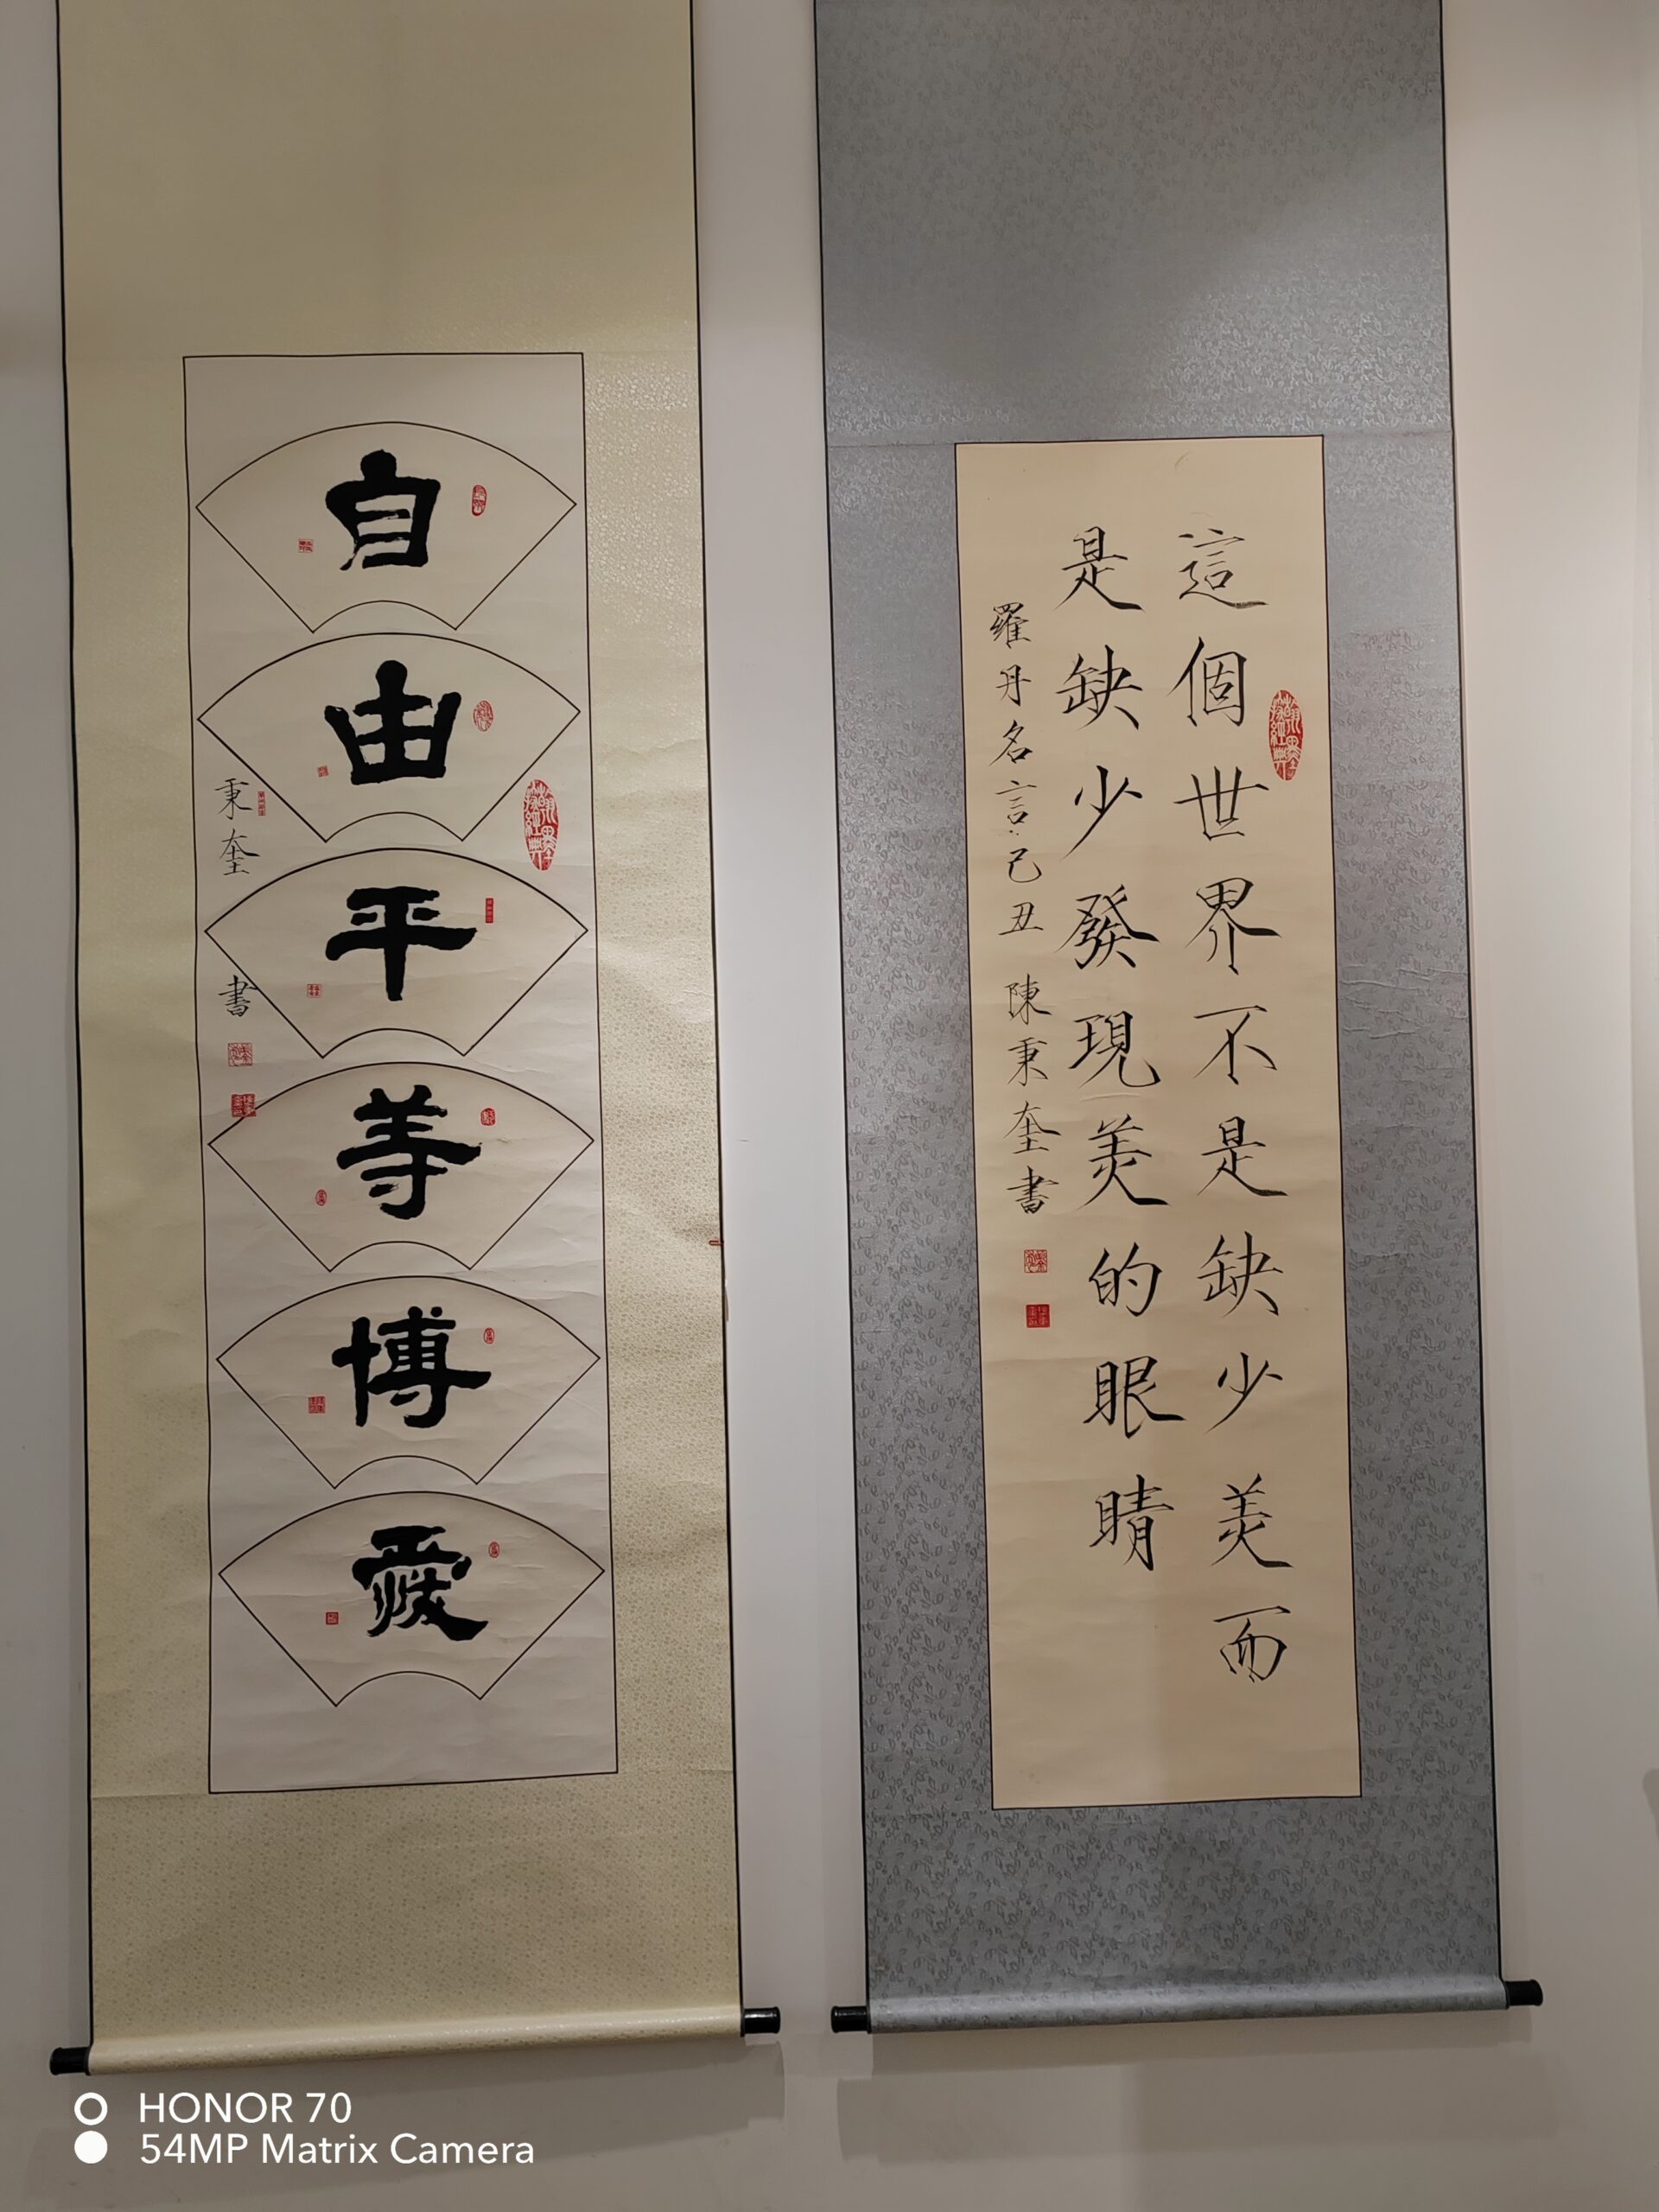 這個世界不是缺少美而
是缺少發現美的眼睛
羅丹名言己丑 陳秉奎書
自
由
平
等
博
愛
秉奎 書
HONOR 70
54MP Matrix Camera